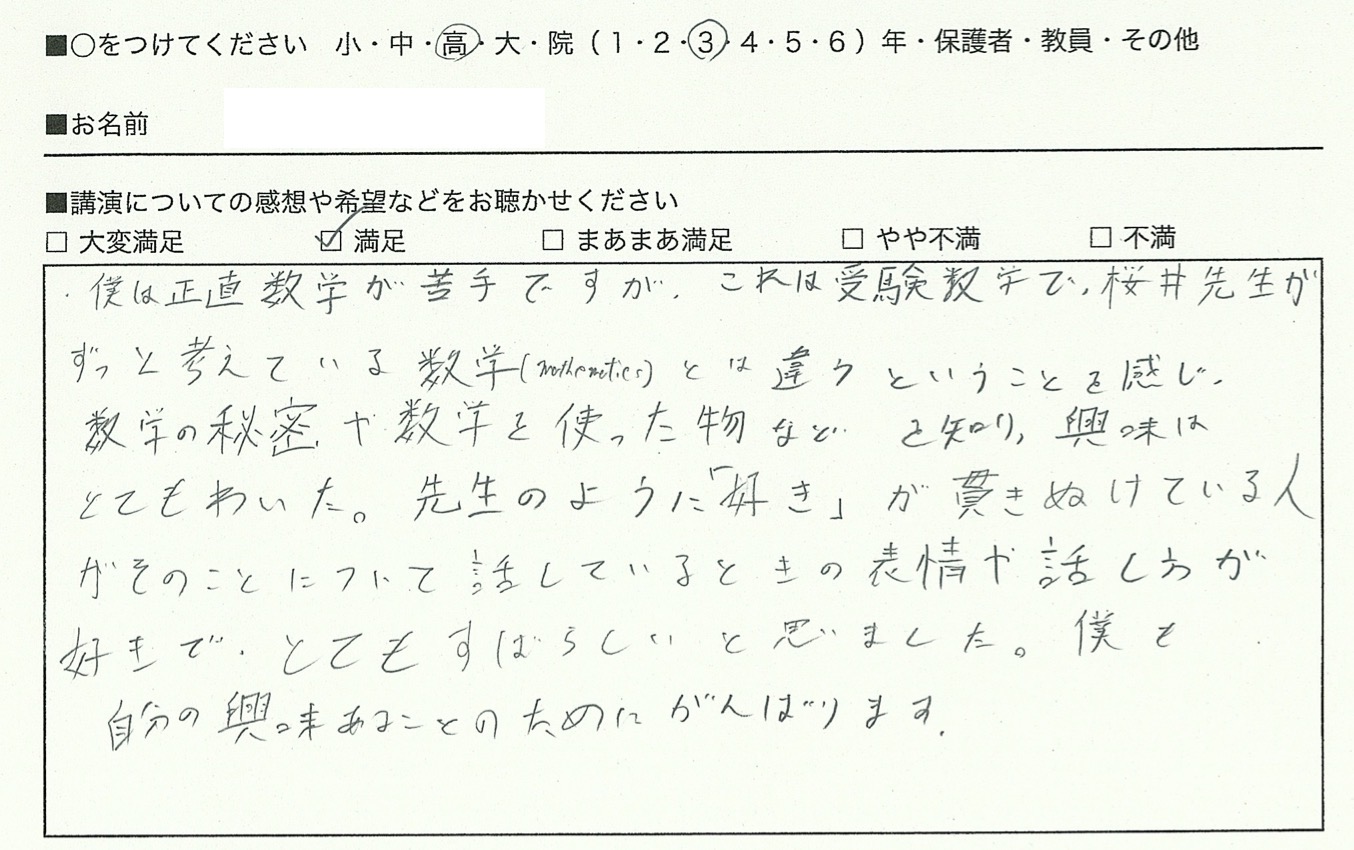 ■○をつけてください 小・中・高・大・院（1・2・3・4・5・6）年・保護者・教員・その他
■お名前
■講演についての感想や希望などをお聴かせください
□ 大変満足 ☑ 満足 □ まあまあ満足 □ やや不満 □ 不満
・僕は正直数学が苦手ですが、これは受験数学で、桜井先生が
ずっと考えている数学(mathematics)とは違うということを感じ、
数学の秘密や数学を使った物などを知り、興味は
とてもわいた。先生のように「好き」が貫きぬけている人
がそのことについて話しているときの表情や話し方が
好きで、とてもすばらしいと思いました。僕も
自分の興味あることのためにがんばります。